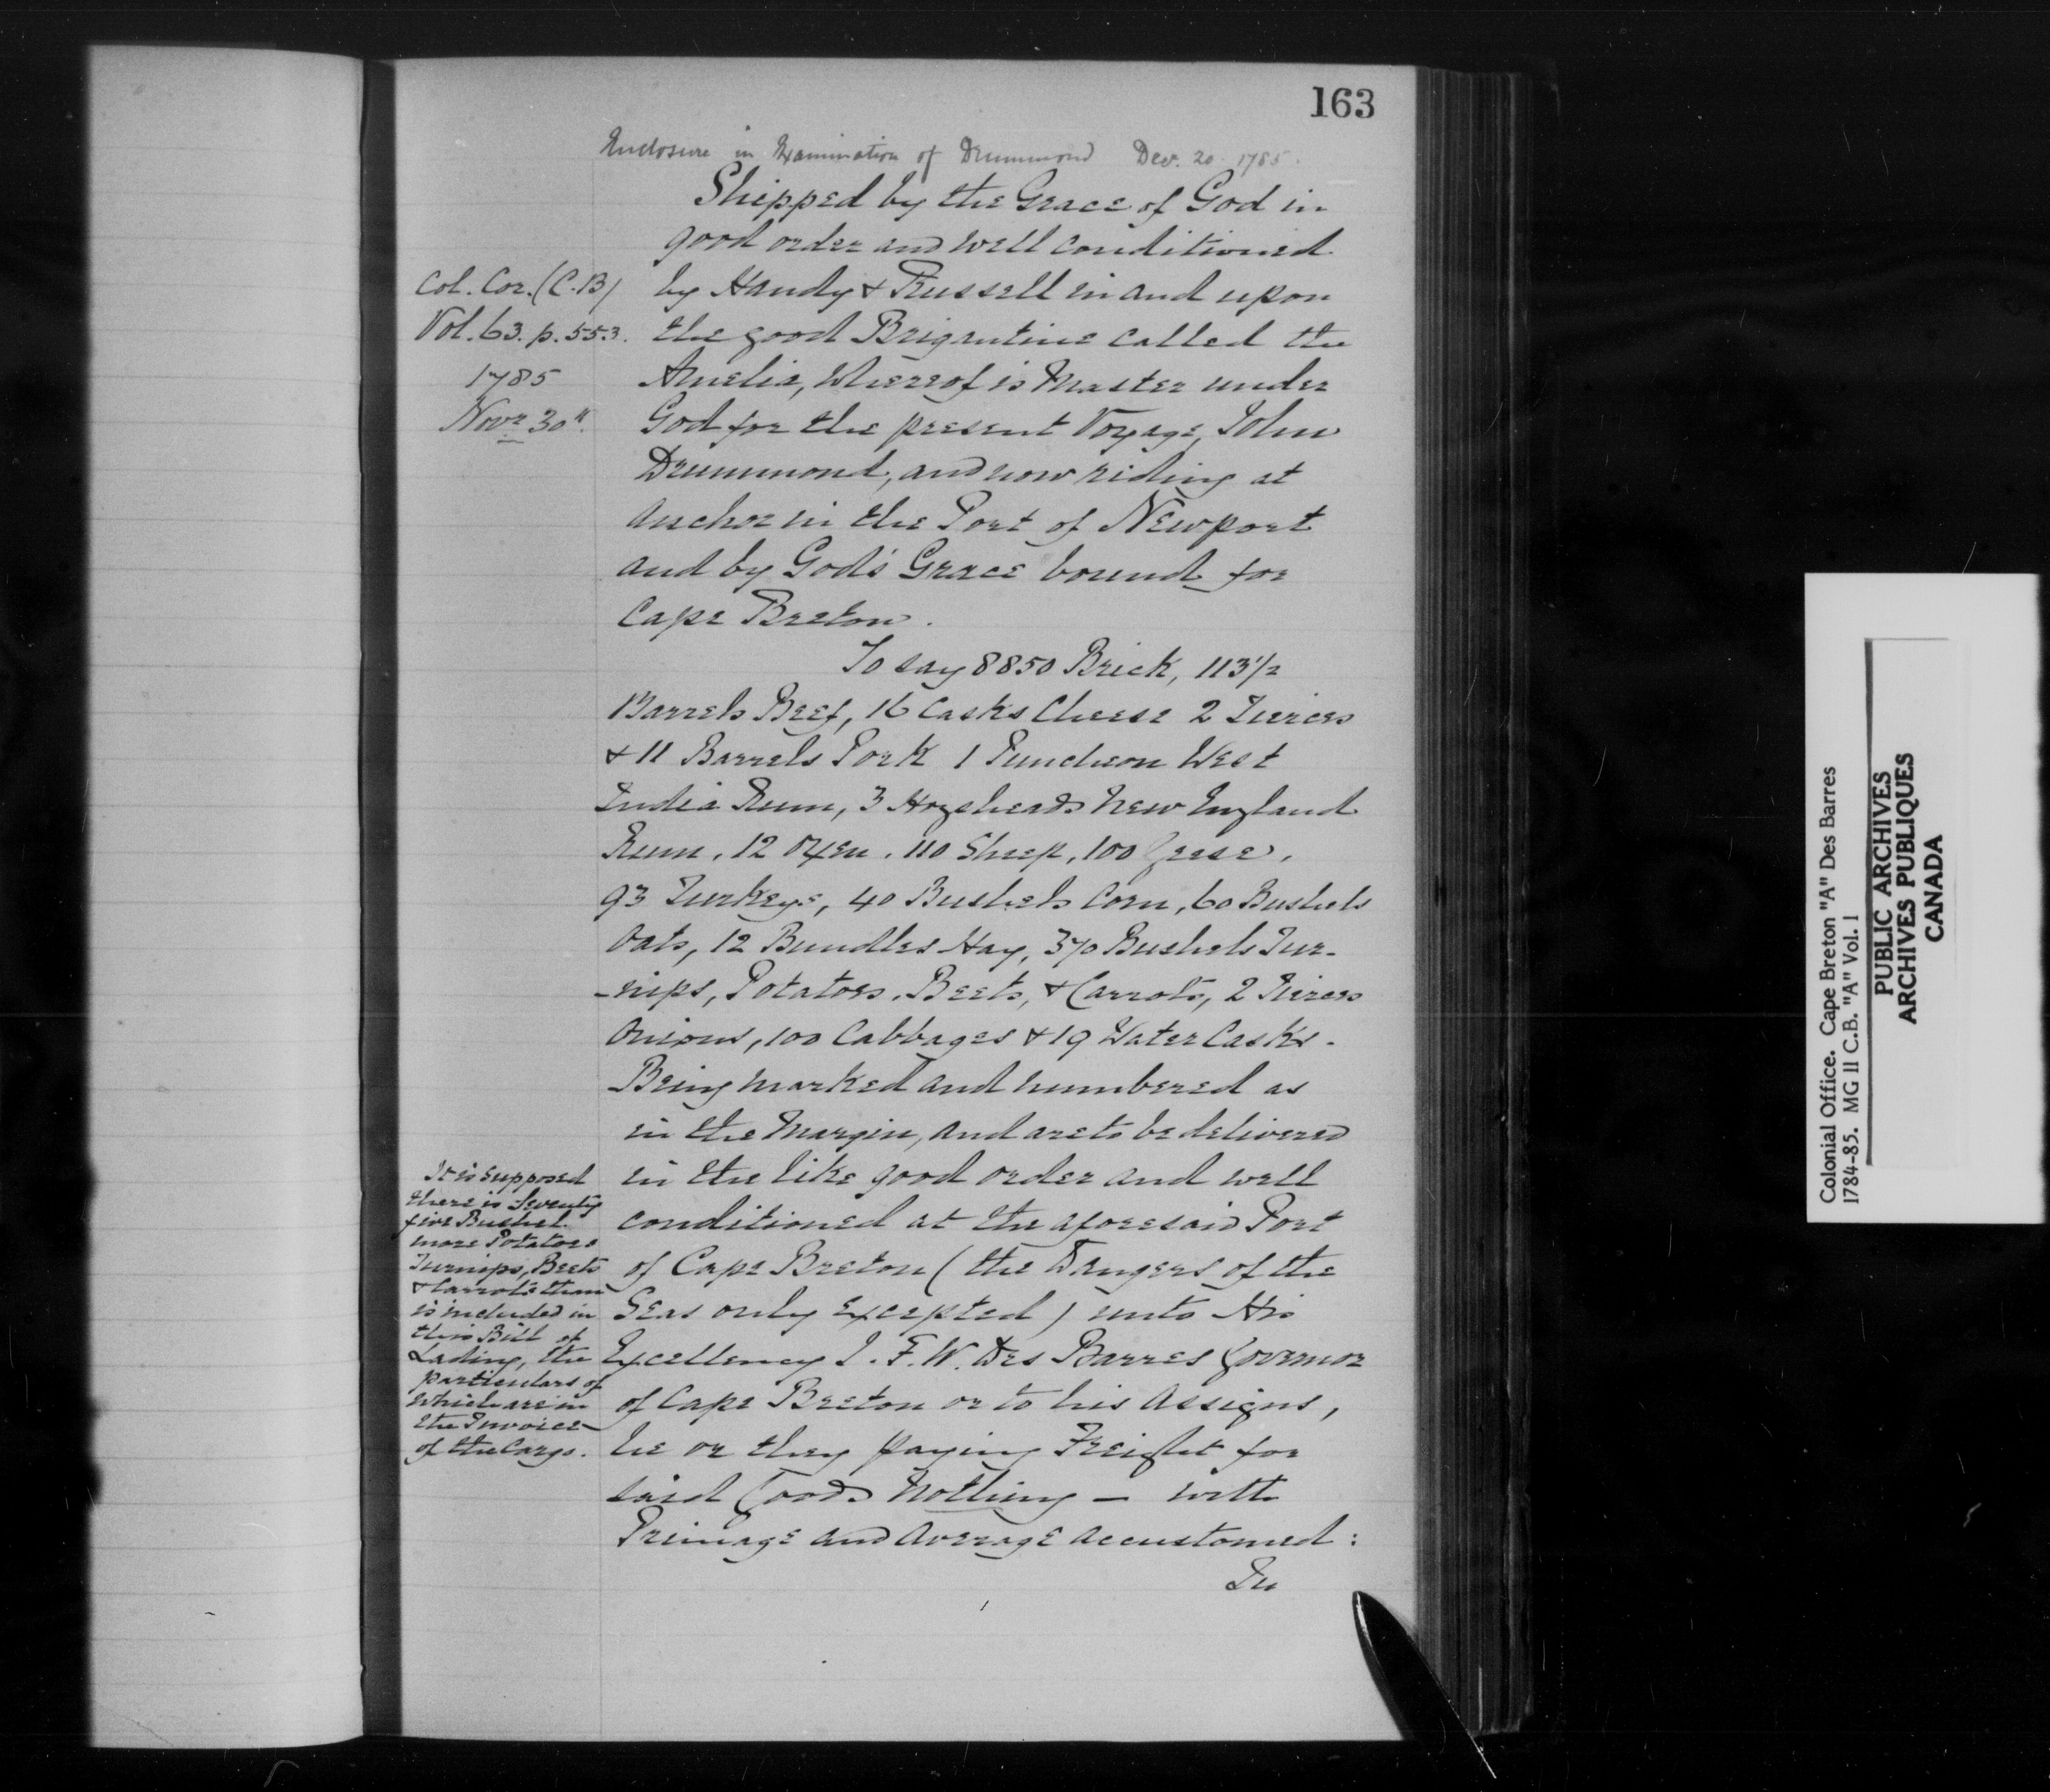 163
Enclosure in Examination of Drummond Dec. 20 1785.
Shipped by the Grace of God in
good order and well conditioned
Col. Cor. (C.B)
Vol. 63. p. 553.
1785
Novr 30th.
by Handy & Russell in and upon
the good Brigantine called the
Amelia, whereof is Master under
God for the present Voyage, John
Drummond, and now riding at
anchor in the Port of Newport
and by God's Grace bound for
Cape Breton.
To say 8850 Brick, 113 1/2
Barrels Beef, 16 Casks Cheese 2 Tierces
& 11 Barrels Pork 1 Puncheon West
India Rum, 3 Hogsheads New England
Rum, 12 Oxen, 110 Sheep, 100 Geese,
93 Turkeys, 40 Bushels Corn, 60 Bushels
Oats, 12 Bundles Hay, 370 Bushels Tur-
-nips, Potatoes, Beets, & Carrots, 2 Tierces
Onions, 100 Cabbages & 19 Water Casks.
Being marked and numbered as
in the Margin, and are to be delivered
in the like good order and well
conditioned at the aforesaid Port
of Cape Breton (the Dangers of the
Seas only excepted) unto His
Excellency J. F. W. Des Barres Governor
of Cape Breton or to his Assigns,
he or they paying Freight for
said Goods Nothing — with
Primage and Average accustomed:
In
It is supposed
there is Seventy
five Bushel
more Potatoes
Turnips, Beets
& Carrots than
is included in
this Bill of
Lading, the
particulars of
which are in
the Invoice
of the Cargo.
Colonial Office. Cape Breton "A" Des Barres
1784-85. MG 11 C.B. "A" Vol. 1
PUBLIC ARCHIVES
ARCHIVES PUBLIQUES
CANADA